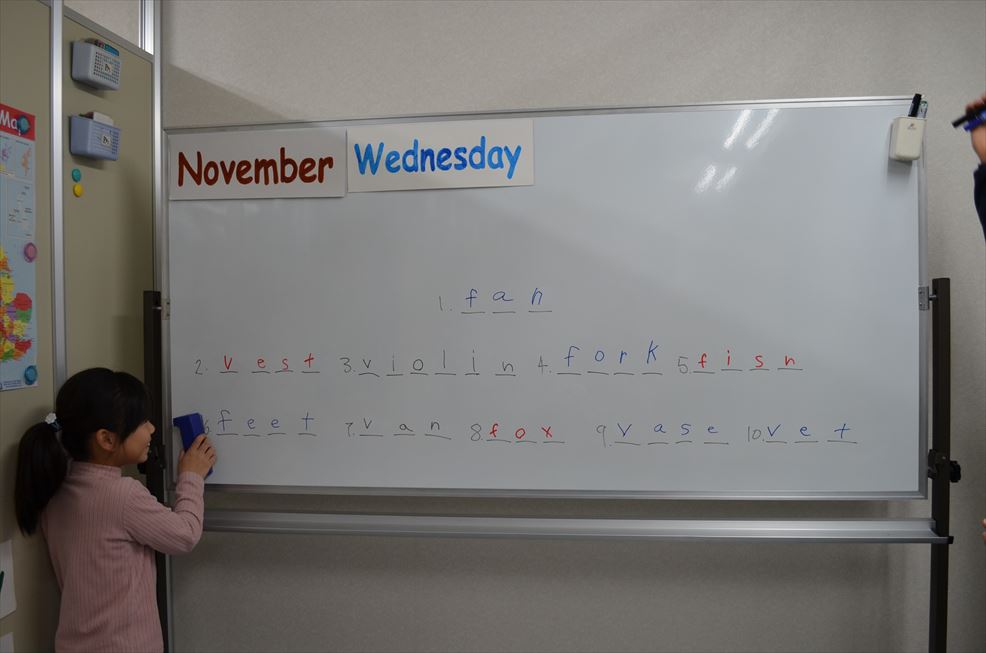 Ma
November Wednesday
1. fan
2. vest 3. violin 4. fork 5. fish
6. feet 7. van 8. fox 9. vase 10. vet